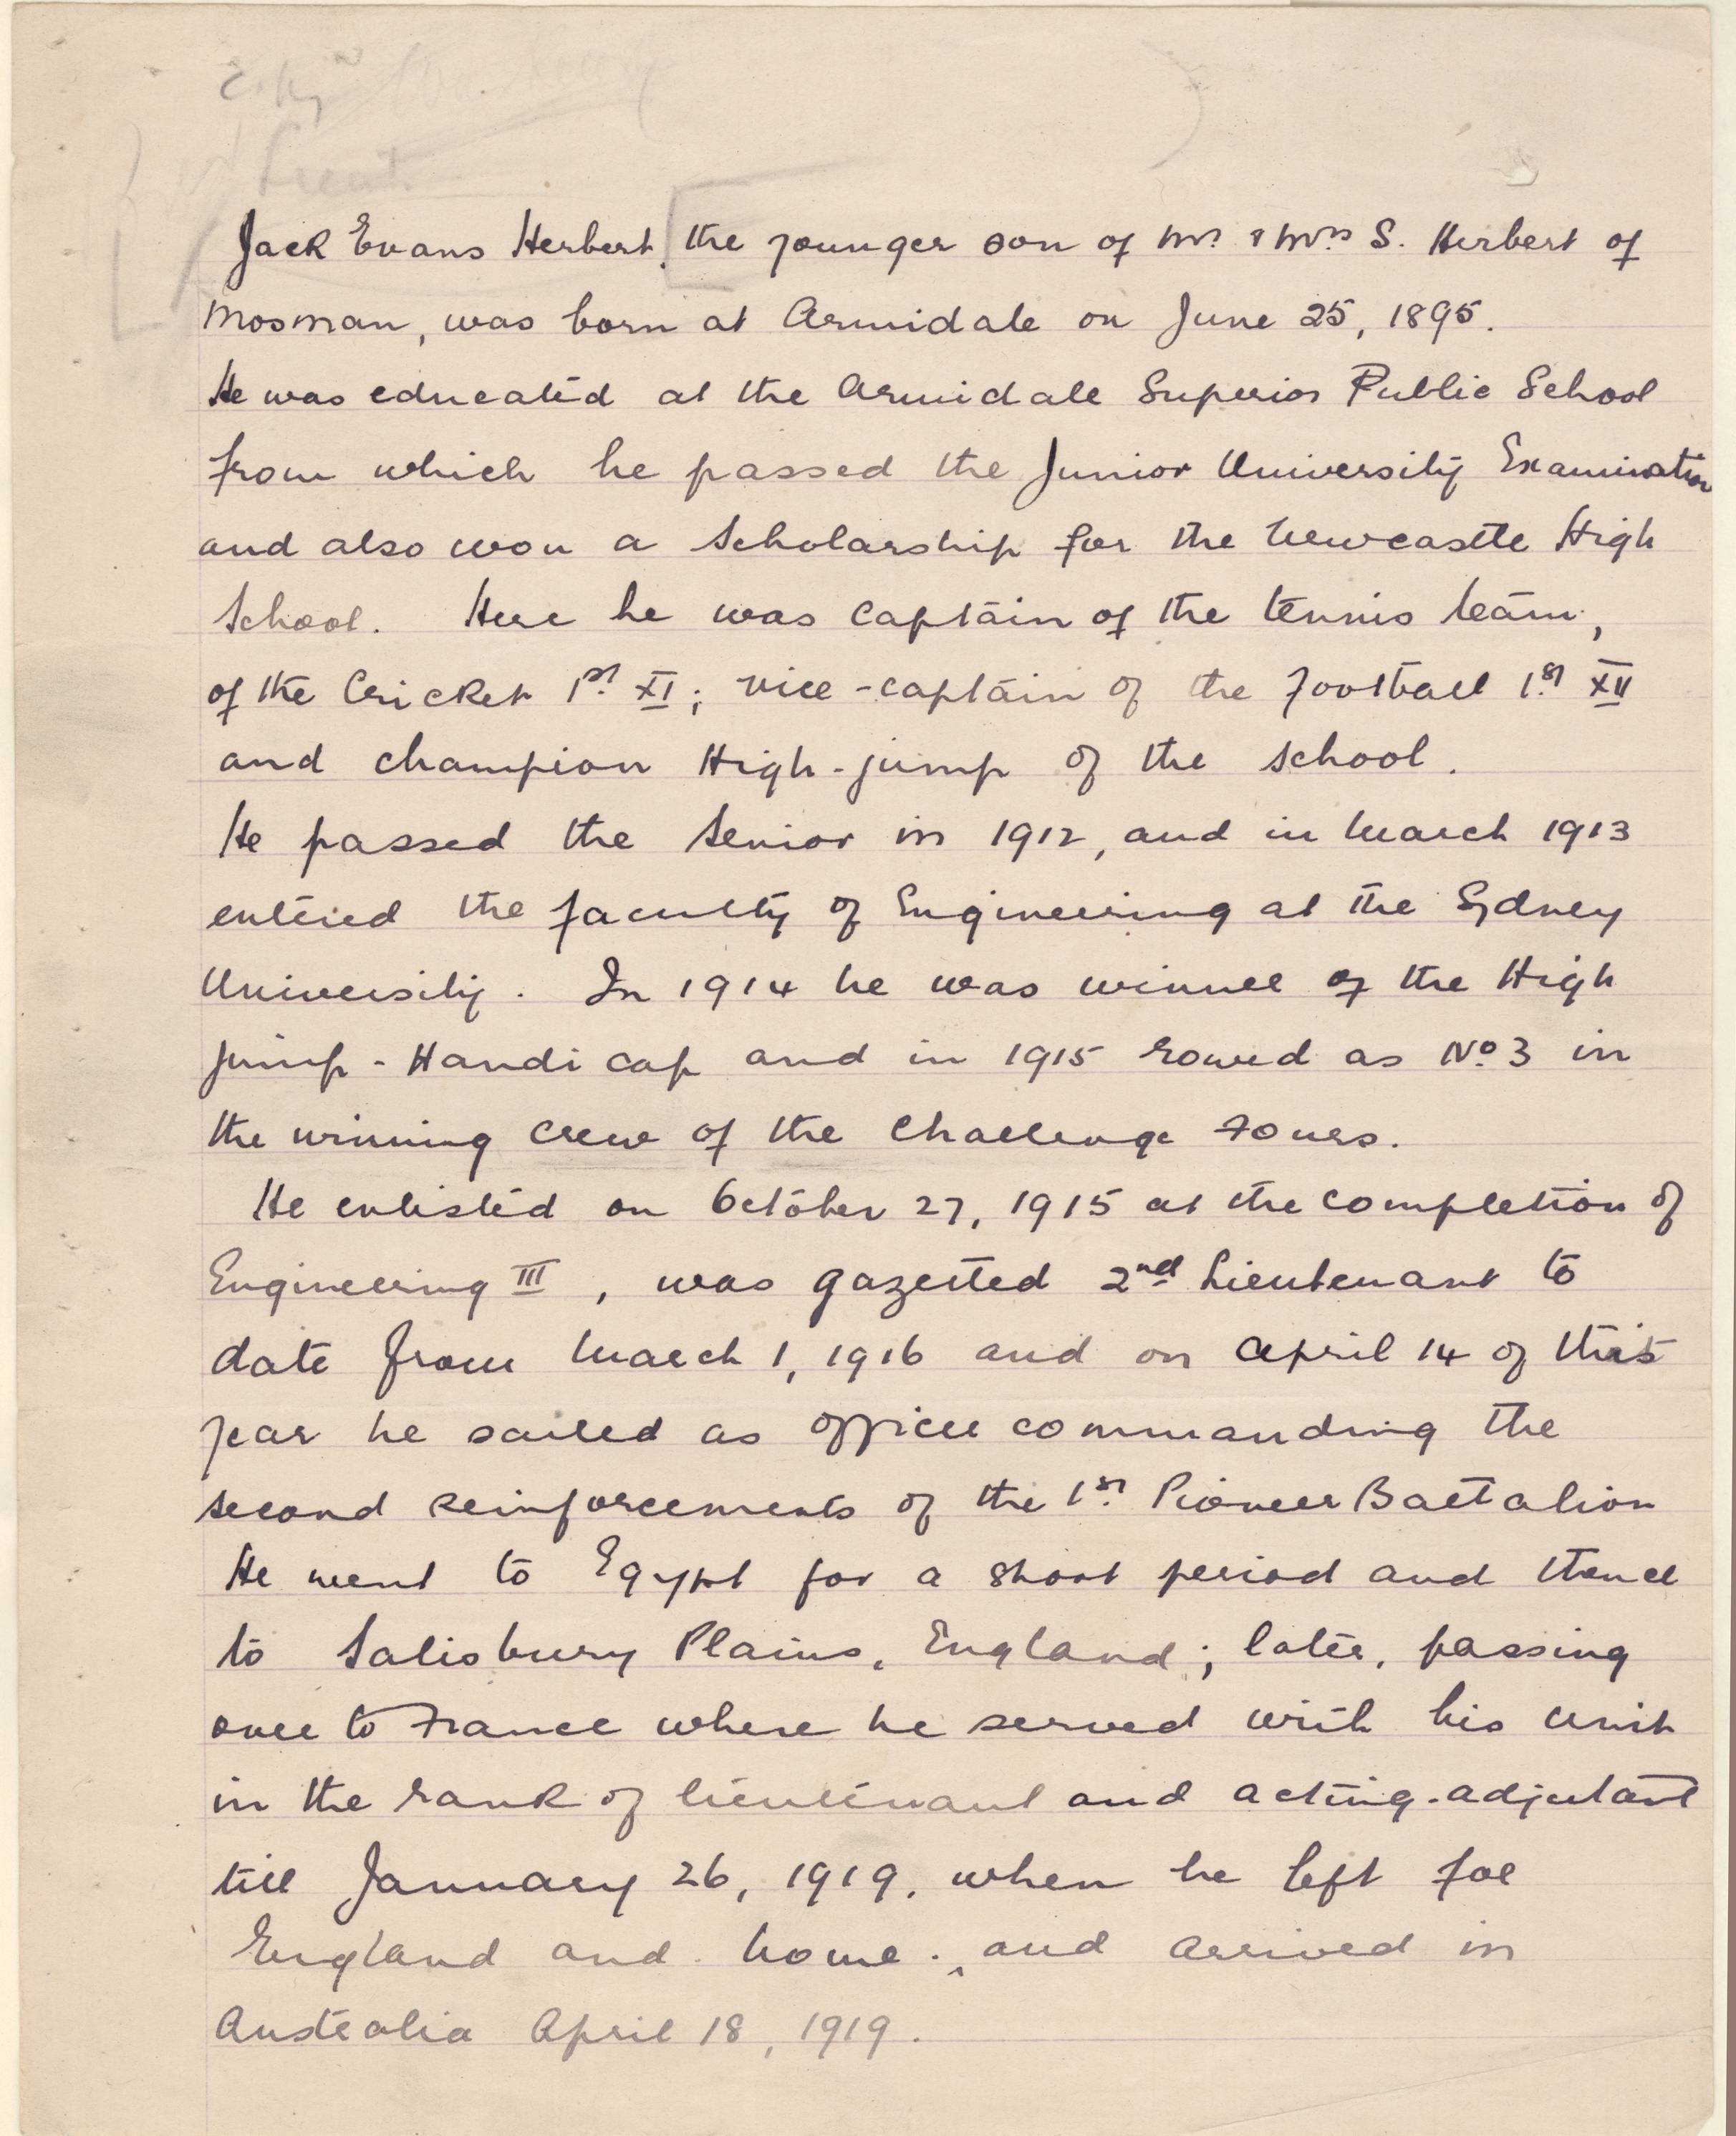 Lieut.
Jack Evans Herbert, [the younger son of Mr. & Mrs S. Herbert of
Mosman, was born at Armidale on June 25, 1895.
He was educated at the Armidale Superior Public School
from which he passed the Junior University Examination
and also won a scholarship for the Newcastle High
School. Here he was captain of the tennis team,
of the Cricket 1st. XI; vice-captain of the football 1st. XV
and champion High-jump of the school.
He passed the Senior in 1912, and in March 1913
entered the faculty of Engineering at the Sydney
University. In 1914 he was winner of the High
jump-Handicap and in 1915 rowed as No. 3 in
the winning crew of the Challenge Fours.
He enlisted on October 27, 1915 at the completion of
Engineering III, was gazetted 2nd Lieutenant to
date from March 1, 1916 and on April 14 of this
year he sailed as officer commanding the
second reinforcements of the 1st. Pioneer Battalion
He went to Egypt for a short period and thence
to Salisbury Plains, England; later, passing
over to France where he served with his unit
in the rank of lieutenant and acting-adjutant
till January 26, 1919, when he left for
England and home. ‸ and arrived in
Australia April 18, 1919.